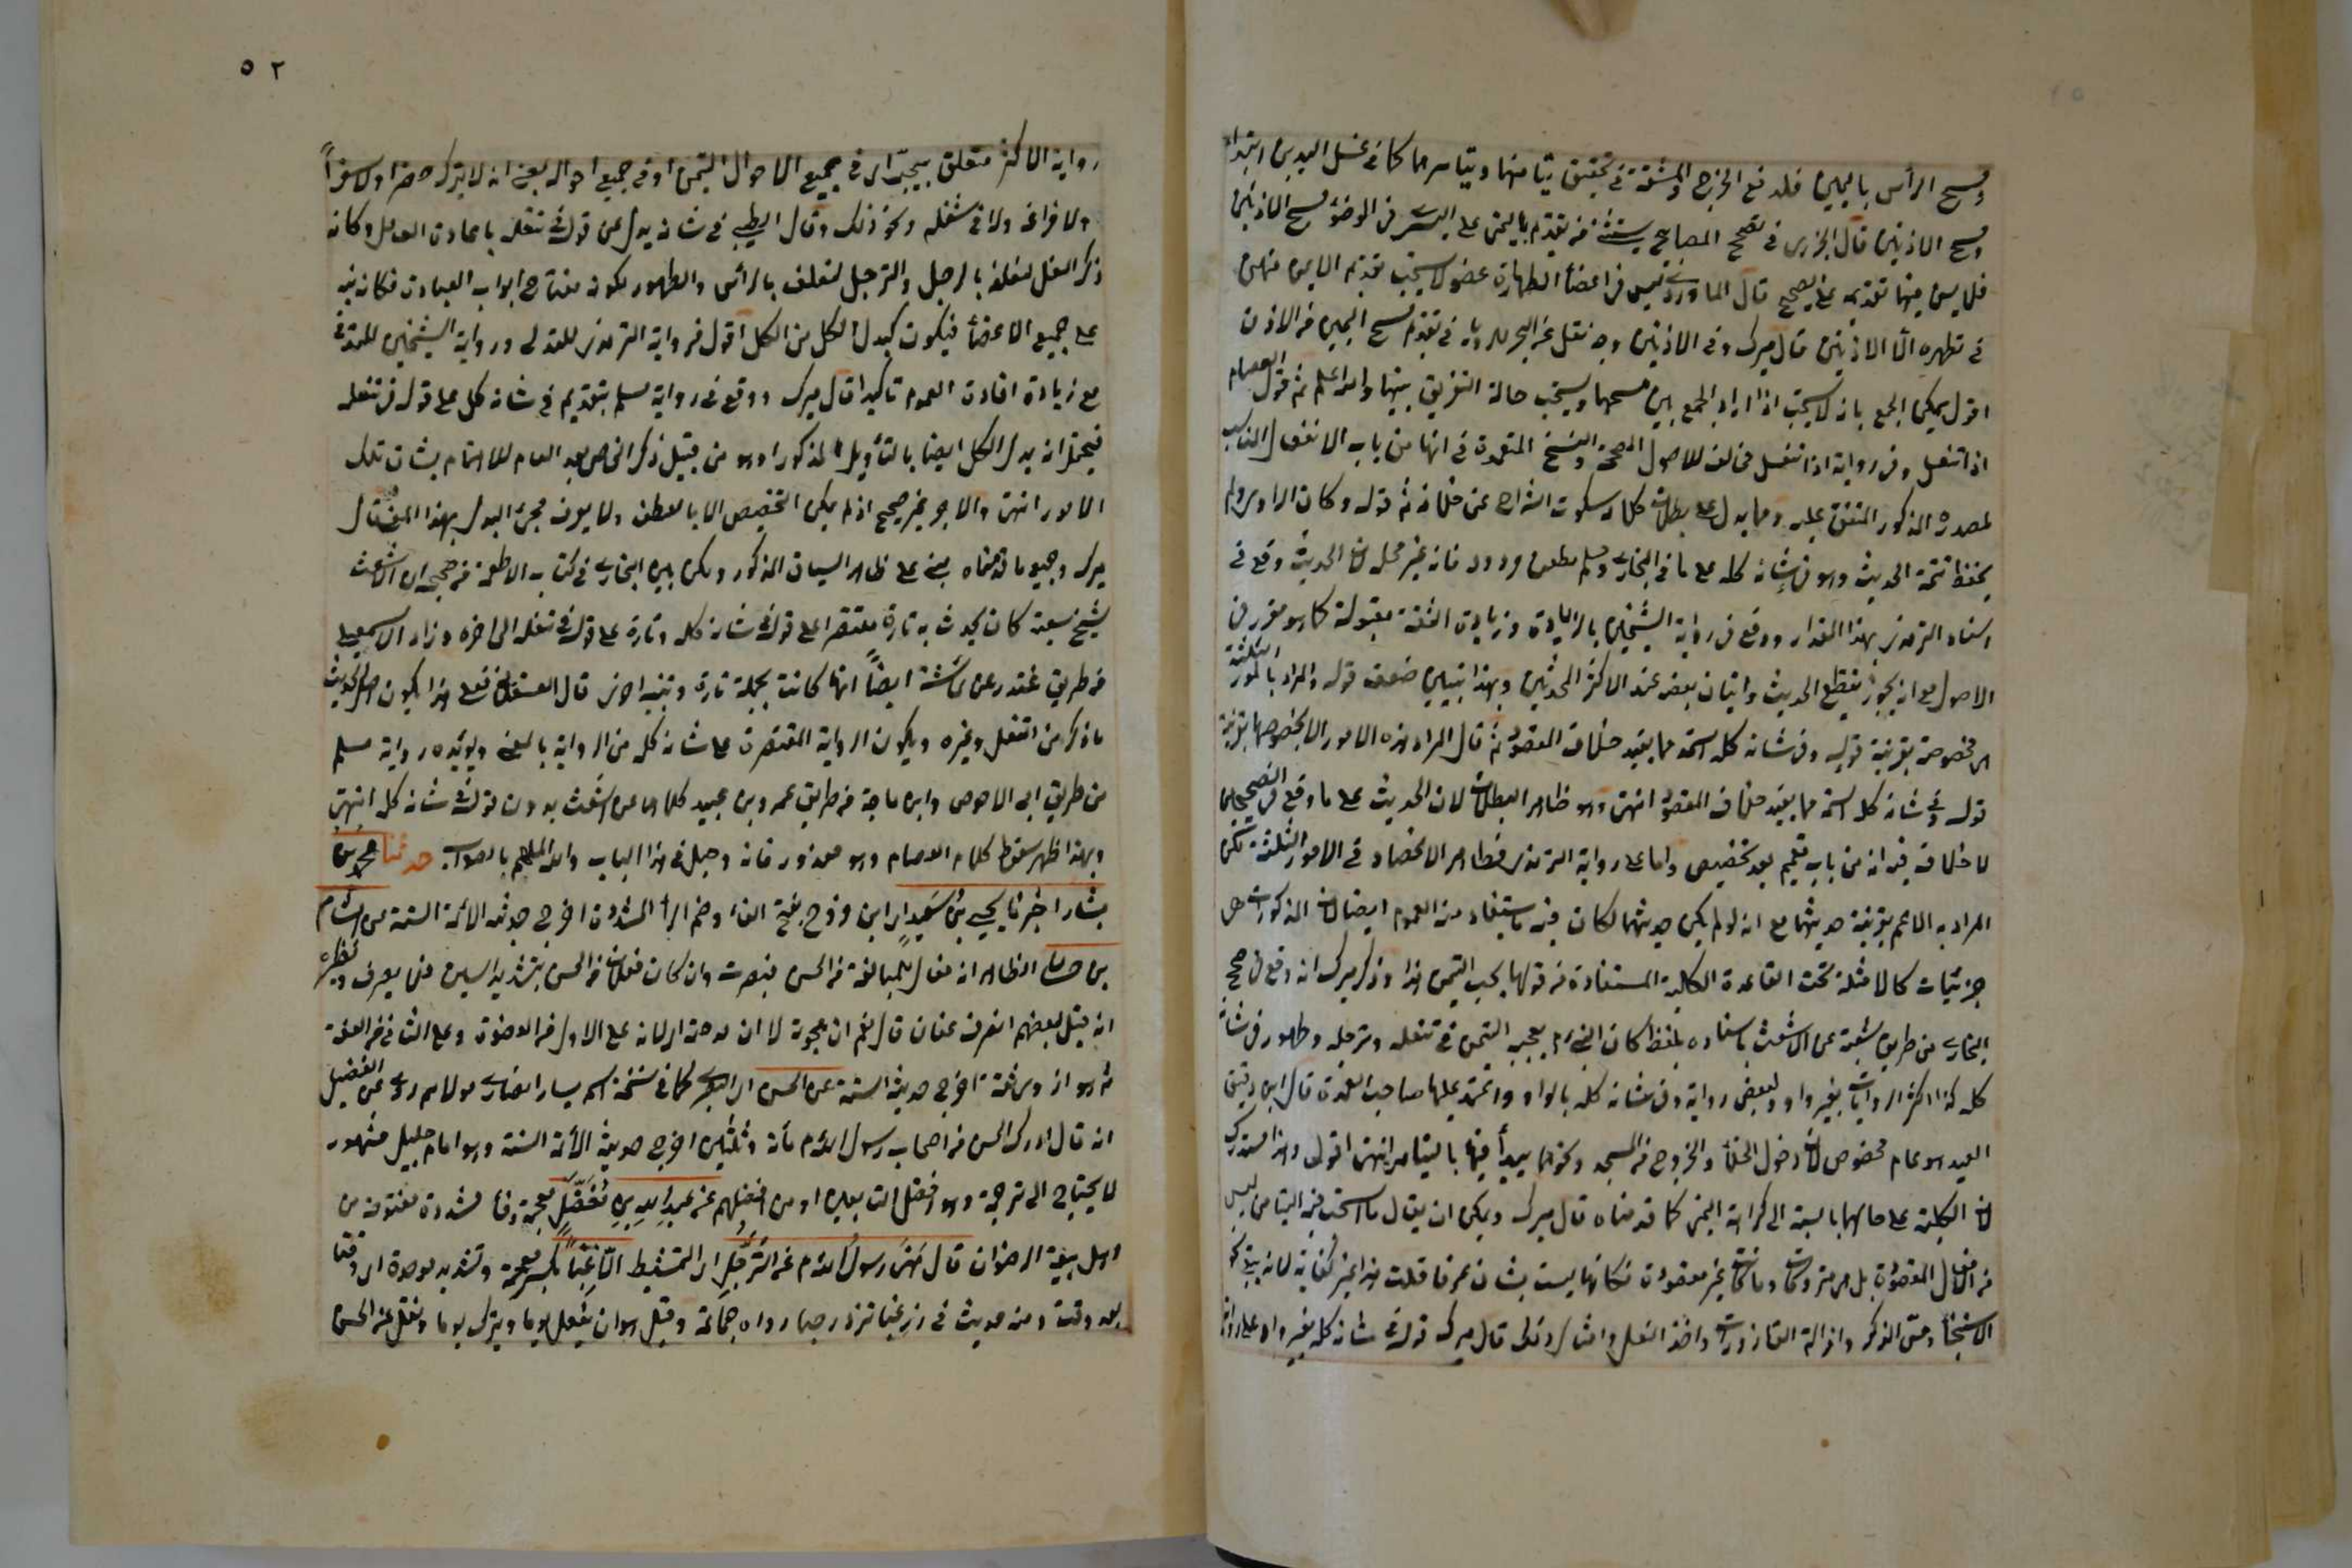 ومسح الرأس باليمين فلدفع الحرج والمشقة في تحقيق تيامنها وتياسرهما كما في غسل اليدين ابتداء
ومسح الاذنين قال الجزري في تصحيح المصابيح يستثنى من تقديم باليمنى على اليسرى في الوضوء مسح الاذنين
فلا يسن فيهما تقديمه على الصحيح قال الماوردي ليس في اعضاء الطهارة عضو لا يستحب تقديم الايمن منه
في تطهيره الا الاذنين قال ميرك وفي الاذنين وجه نقل عن البحر للروياني في تقديم مسح اليمين من الاذن
اقول يمكن الجمع بانه لا يستحب اذا اراد الجمع بين مسحهما ويستحب حالة التفريق بينهما والله اعلم ثم قول العصام
اذا تنعل وفي رواية اذا انتعل مخالف للاصول المصححة والنسخ المتعددة في انها من باب الانفعال المناسب
لمصدره المذكور المتفق عليه ومما يدل على بطلان كلامه سكوت الشراح عن خلافه ثم قوله وكان الراوي لم
يحفظ تتمة الحديث وهو في شانه كله على ما في البخاري ومسلم مطعون مردود فانه غير محله لان الحديث وقع في
اسناد الترمذي بهذا المقدار ووقع في رواية الشيخين بالزيادة وزيادة الثقة مقبولة كما هو مقرر في
الاصول مع انه يجوز تقطيع الحديث واتيان بعضه عند الاكثر المحدثين وبهذا تبين ضعف قوله والمراد بالامور الثلثة
اي مخصوصة بقرينة قوله وفي شانه كله استحمه مما يفيد خلاف المقصود ثم قال المراد هذه الامور لا بخصوصها بقرينة
قوله وفي شانه كله استحمه مما يفيد خلاف المقصود انتهى وهو ظاهر البطلان لان الحديث على ما وقع في الصحيحين
لا خلاف فيه انه من باب تعميم بعد تخصيص واما على رواية الترمذي فظاهر الانحصار في الامور الثلثة لكن
المراد به الاعم بقرينة حديثهما مع انه لو لم يكن حديثهما لكان فيه ما يستفاد منه العموم ايضا لان المذكورات
جزئيات كالامثلة تحت القاعدة الكلية المستفادة من قولها يحب التيمن هذا وذكر ميرك انه وقع في صحيح
البخاري من طريق شعبة عن الاشعث باسناده بلفظ كان النبي م يعجبه التيمن في تنعله وترجله وطهوره في شانه
كله كذا اكثر الروايات بغير واو ولبعض رواية وفي شانه كله بالواو واعتمد عليها صاحب العمدة قال ابن دقيق
العيد هو عام مخصوص لان دخول الخلاء والخروج من المسجد ونحوهما يبدأ فيها باليسار انتهى اقول وهذا مستدرك
لان الكلية على حالها بالنسبة الى كراهة اليمنى كما قدمناه قال ميرك ويمكن ان يقال ما استحب فيه التياسر ليس
من الافعال المقصودة بل هي متروكات وما كانت غير مقصودة فكانها ليست بشان عرفا قلت هذا غير كفاية لانه يرد نحو
الاستنجاء ومس الذكر وازالة القاذورات واخذ النعل وامثال ذلك قال ميرك قوله في شانه كله بغير واو على رواية
٥٢
رواية الاكثر متعلق بيحب اي في جميع الاحوال التيمن او في جميع احواله يعني انه لا يترك حضرا ولا سفرا
ولا فراغه ولا في شغله ونحو ذلك وقال الطيبي في شانه بدل من قوله في تنعله باعادة العامل وكانه
ذكر التنعل لتعلقه بالرجل والترجل لتعلقه بالرأس والطهور لكونه مفتاح ابواب العبادة فكانه نبه
على جميع الاعضاء فيكون كبدل الكل من الكل اقول فرواية الترمذي للتدلي ورواية الشيخين للترقي
مع زيادة افادة العموم تاكيدا قال ميرك ووقع في رواية مسلم بتقديم في شانه كل على قوله في تنعله
فيحتمل انه بدل الكل ايضا بالتأويل المذكور او هو من قبيل ذكر الخاص بعد العام للاهتمام بشان تلك
الامور انتهى والاخير غير صحيح اذ لم يكن التخصيص الا بالعطف ولا يعرف مجيء البدل بهذا المعنى قال
ميرك وجميع ما قدمناه مبني على ظاهر السياق المذكور ولكن بين البخاري في كتاب الاطعمة من صحيحه ان الاشعث
شيخ شعبة كان يحدث به تارة مقتصرا على قوله في شانه كله وتارة على قوله في تنعله الى اخره وزاد الاسمعيلي
من طريق غندر عن عائشة ايضا انها كانت تجمله تارة وتبينه اخرى قال العسقلاني فعلى هذا يكون اصل الحديث
ما ذكر من التنعل وغيره ويكون الرواية المقتصرة على شانه كله من الرواية بالمعنى ويؤيده رواية مسلم
من طريق ابي الاحوص وابن ماجة من طريق عمرو بن عبيد كلاهما عن اشعث بدون قوله في شانه كله انتهى
وبهذا ظهر سقوط كلام العصام وهو معذور فانه دخيل في هذا الباب والله الملهم بالصواب حدثنا محمد بن
بشار اخبرنا يحيى بن سعيد اي ابن فروخ بفتح الفاء وضم الراء المشددة اخرج حديثه الائمة الستة عن هشام
بن حسان الظاهر انه فعال للمبالغة من الحسن فينصرف وان كان فعلان من الحس بتشديد السين فلا يصرف ونظيره
انه قيل لبعضهم اتصرف عفان قال نعم ان هجوته لا ان مدحته اي لانه على الاول من العفونة وعلى الثاني من العفة
ثم هو ازدي ثقة اخرج حديثه الستة عن الحسن اي البصري كما في نسخة اسم يسار انصاري مولاهم روى عن الفضيل
انه قال ادرك الحسن من اصحاب رسول الله م مأة وثلثين اخرج حديثه الأئمة الستة وهو امام جليل مشهور
لا يحتاج الى ترجمة وهو افضل التابعين او من افضلهم عن عبد الله بن مغفل بمعجمة وفاء مشددة مفتوحة من
اهل بيعة الرضوان قال نهى رسول الله م عن الترجل اي التمشيط الا غبا بكسر معجمة وتشديد موحدة اي وقتا
بعد وقت ومنه حديث في زر غبا تزدد حبا رواه جماعة وقيل هو ان يفعل يوما ويترك يوما ونقل عن الحسن